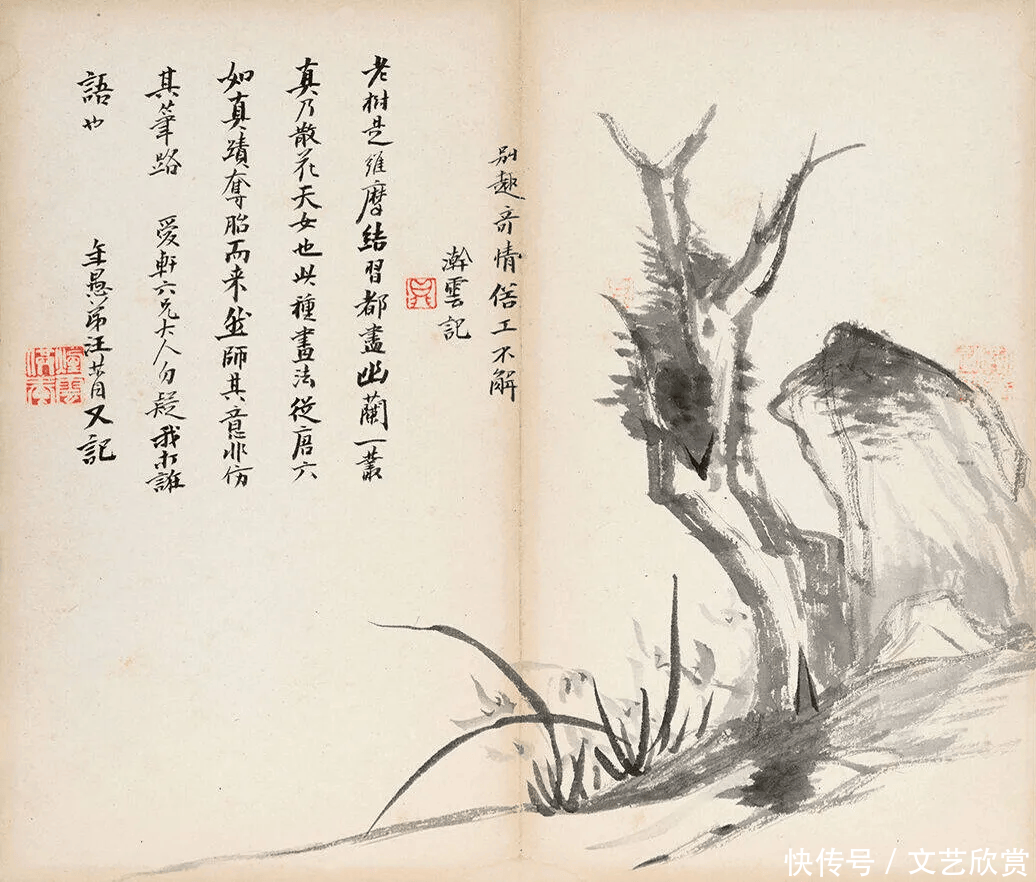 別趣奇情俗工不解
澣雲記
老樹是維摩結習都盡幽蘭一叢
真乃散花天女也此種畫法從唐六
如真蹟奪胎而来然師其意非仿
其筆路 愛軒六兄大人勿疑我打誑
語也
年愚弟汪又記
快传号 / 文艺欣赏